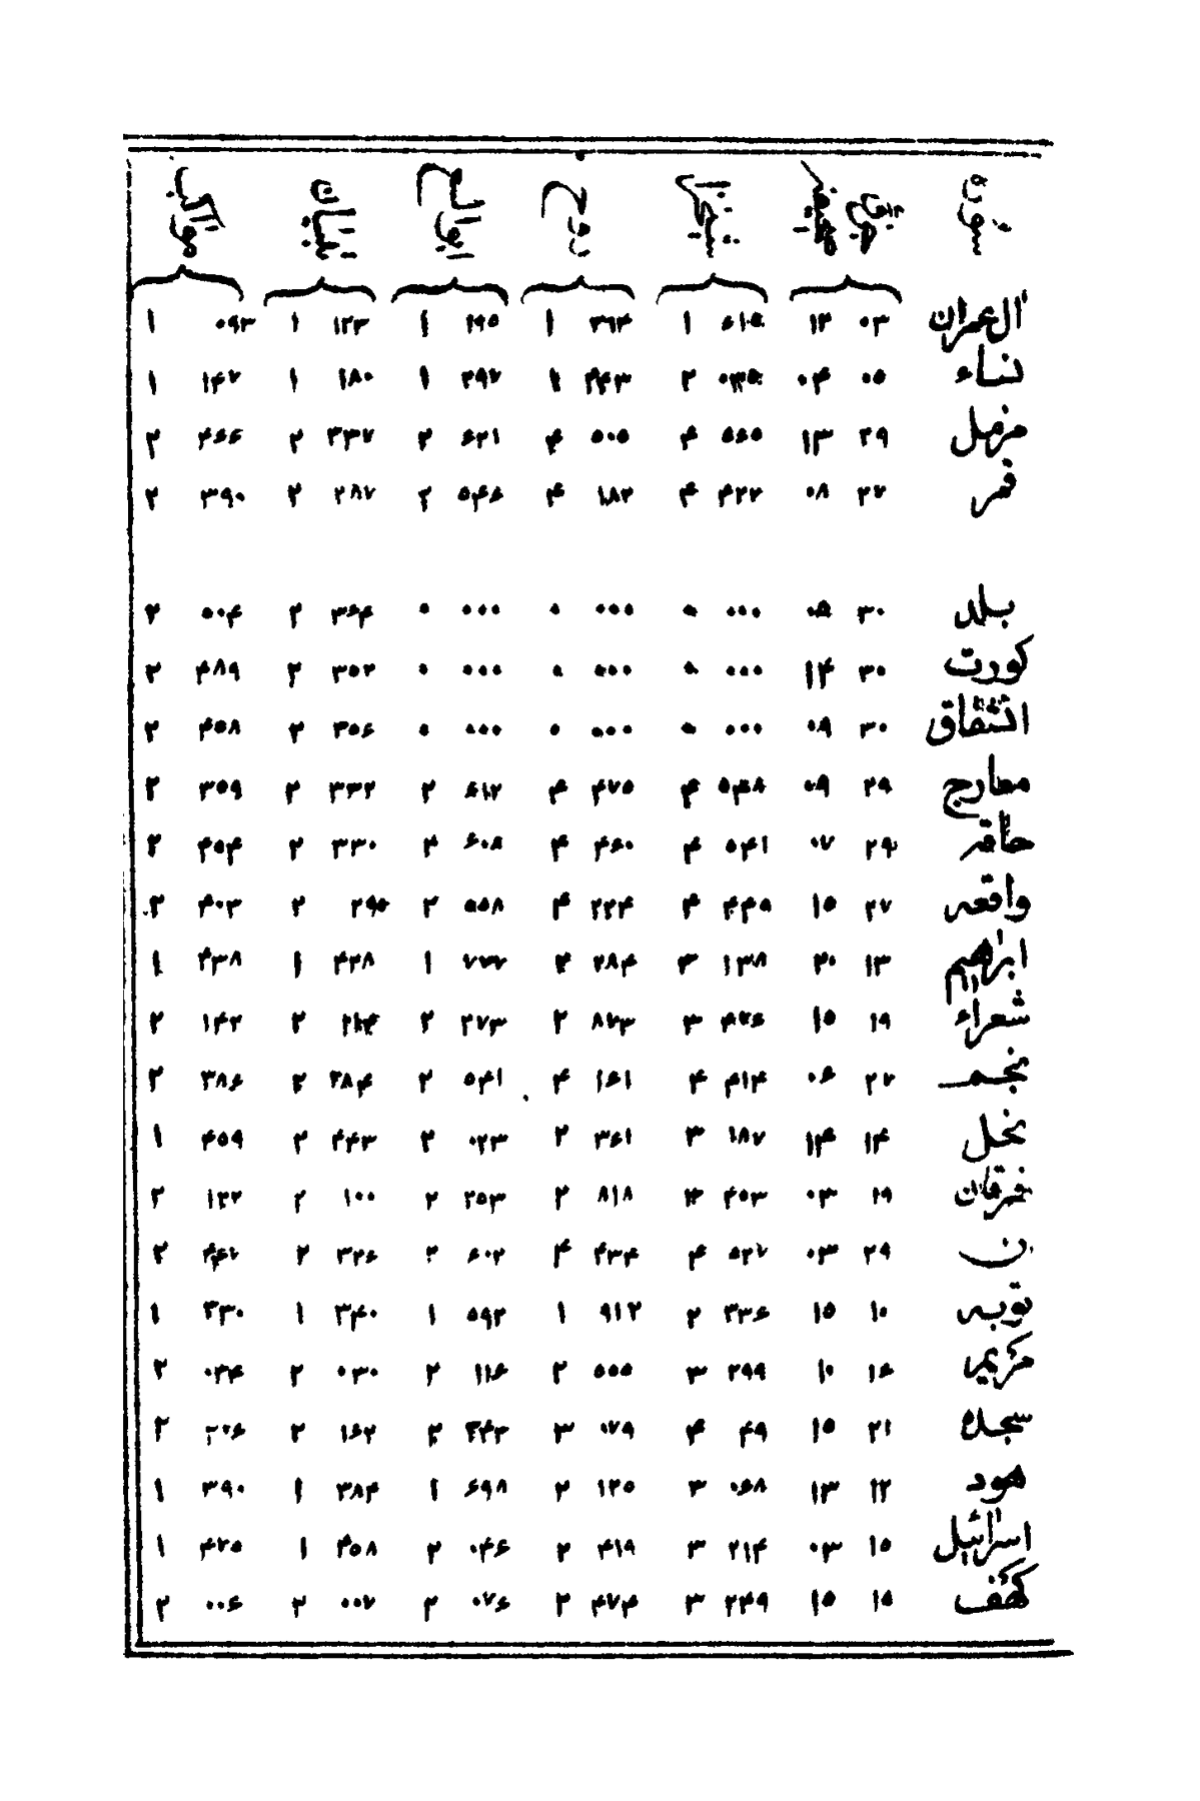 سوره مجمع البیان روح ابوالفتوح تبیان مواهب
آل عمران ۰۳ ۱۲ ۶۱۵ ۱ ۳۶۴ ۱ ۱۹۵ ۱ ۱۲۳ ۱ ۰۹۳ ۱
نساء ۰۵ ۰۴ ۰۳۵ ۲ ۴۴۳ ۱ ۲۹۷ ۱ ۱۸۰ ۱ ۱۴۷ ۱
مزمل ۲۹ ۱۳ ۵۶۵ ۴ ۵۰۵ ۴ ۶۲۱ ۲ ۳۳۷ ۲ ۴۶۶ ۲
قمر ۲۷ ۰۸ ۴۲۷ ۴ ۱۸۲ ۴ ۵۴۶ ۲ ۲۸۷ ۲ ۳۹۰ ۲
بلد ۳۰ ۰۵ ۰۰۰ ۰ ۰۰۰ ۰ ۰۰۰ ۰ ۳۶۴ ۲ ۵۰۴ ۲
کورت ۳۰ ۱۴ ۰۰۰ ۰ ۰۰۰ ۰ ۰۰۰ ۰ ۳۵۲ ۲ ۴۸۹ ۲
انشقاق ۳۰ ۰۹ ۰۰۰ ۰ ۰۰۰ ۰ ۰۰۰ ۰ ۳۵۶ ۲ ۴۵۸ ۲
معارج ۲۹ ۰۹ ۵۴۸ ۴ ۴۷۵ ۴ ۶۱۲ ۲ ۳۳۲ ۲ ۳۵۹ ۲
حاقه ۲۹ ۰۷ ۵۴۱ ۴ ۴۶۰ ۴ ۶۰۸ ۲ ۳۳۰ ۲ ۴۵۴ ۲
واقعه ۲۷ ۱۵ ۴۴۵ ۴ ۲۲۴ ۴ ۵۵۸ ۲ ۲۹۵ ۲ ۴۰۳ ۲
ابراهیم ۱۳ ۲۰ ۱۳۸ ۳ ۲۸۴ ۲ ۷۷۷ ۱ ۴۲۸ ۱ ۴۳۸ ۱
شعراء ۱۹ ۱۵ ۴۷۶ ۳ ۸۷۳ ۲ ۲۷۳ ۲ ۲ ۱۴۲ ۲
نجم ۲۷ ۰۶ ۴۱۴ ۴ ۱۶۱ ۴ ۵۴۱ ۲ ۲۸۴ ۲ ۳۸۶ ۲
نحل ۱۴ ۱۴ ۱۸۷ ۳ ۳۶۱ ۲ ۰۲۳ ۲ ۴۴۳ ۲ ۴۵۹ ۱
فرقان ۱۹ ۰۳ ۴۵۳ ۳ ۸۱۸ ۲ ۲۵۳ ۲ ۱۰۰ ۲ ۱۲۲ ۲
ن ۲۹ ۰۳ ۵۲۷ ۴ ۴۳۴ ۴ ۶۰۲ ۲ ۳۲۶ ۲ ۴۴۷ ۲
توبه ۱۰ ۱۵ ۳۳۶ ۲ ۹۱۲ ۱ ۵۹۲ ۱ ۳۴۰ ۱ ۳۳۰ ۱
مریم ۱۶ ۱۰ ۲۹۹ ۳ ۵۵۵ ۲ ۱۱۶ ۲ ۰۳۰ ۲ ۰۳۴ ۲
سجده ۲۱ ۱۵ ۴۹ ۴ ۰۷۹ ۳ ۳۴۳ ۲ ۱۶۲ ۲ ۲۰۶ ۲
هود ۱۲ ۱۳ ۰۶۸ ۳ ۱۲۵ ۲ ۶۹۸ ۱ ۳۸۴ ۱ ۳۹۰ ۱
اسرائیل ۱۵ ۰۳ ۲۱۴ ۳ ۴۱۹ ۲ ۰۴۶ ۲ ۴۵۸ ۱ ۴۷۵ ۱
کهف ۱۵ ۱۵ ۲۴۹ ۳ ۴۷۴ ۲ ۰۷۶ ۲ ۰۰۷ ۲ ۰۰۶ ۲